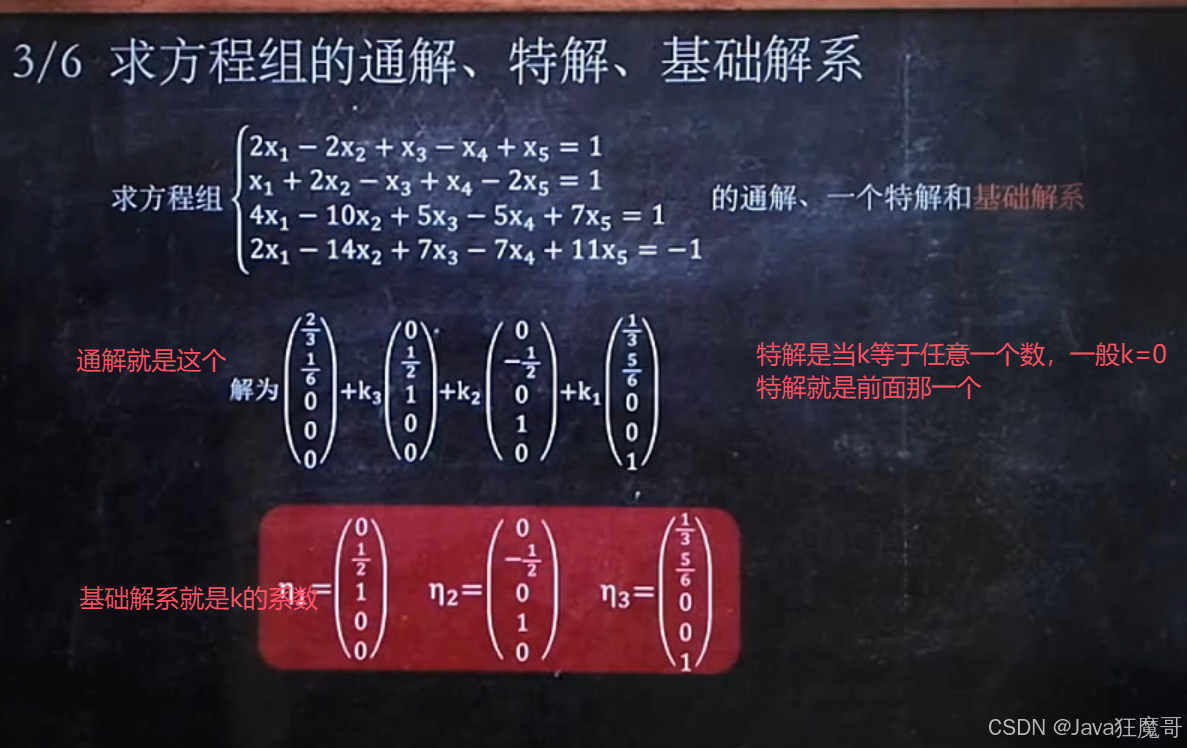 3/6 求方程组的通解、特解、基础解系
2x₁ − 2x₂ + x₃ − x₄ + x₅ = 1
x₁ + 2x₂ − x₃ + x₄ − 2x₅ = 1
求方程组 的通解、一个特解和基础解系
4x₁ − 10x₂ + 5x₃ − 5x₄ + 7x₅ = 1
2x₁ − 14x₂ + 7x₃ − 7x₄ + 11x₅ = −1
通解就是这个
解为 (2/3, 1/6, 0, 0, 0) +k₃ (0, 1/2, 1, 0, 0) +k₂ (0, −1/2, 0, 1, 0) +k₁ (1/3, 5/6, 0, 0, 1)
特解是当k等于任意一个数，一般k=0
特解就是前面那一个
基础解系就是k的系数
η₁= (0, 1/2, 1, 0, 0) η₂= (0, −1/2, 0, 1, 0) η₃= (1/3, 5/6, 0, 0, 1)
CSDN @Java狂魔哥